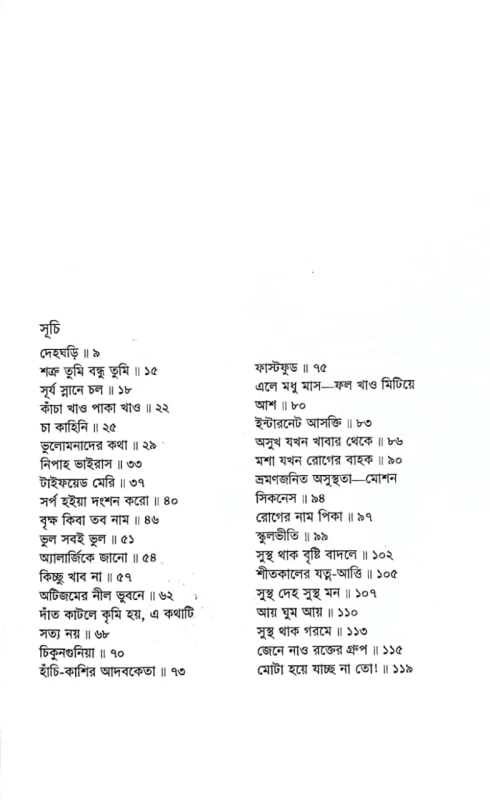 সূচি
দেহঘড়ি ॥ ৯
শত্রু তুমি বন্ধু তুমি ॥ ১৫
সূর্য স্নানে চল ॥ ১৮
কাঁচা খাও পাকা খাও ॥ ২২
চা কাহিনি ॥ ২৫
ভুলোমনাদের কথা ॥ ২৯
নিপাহ ভাইরাস ॥ ৩৩
টাইফয়েড মেরি ॥ ৩৭
সর্প হইয়া দংশন করো ॥ ৪০
বৃক্ষ কিবা তব নাম ॥ ৪৬
ভুল সবই ভুল ॥ ৫১
অ্যালার্জিকে জানো ॥ ৫৪
কিচ্ছু খাব না ॥ ৫৭
অটিজমের নীল ভুবনে ॥ ৬২
দাঁত কাটলে কৃমি হয়, এ কথাটি
সত্য নয় ॥ ৬৮
চিকুনগুনিয়া ॥ ৭০
হাঁচি-কাশির আদবকেতা ॥ ৭৩
ফাস্টফুড ॥ ৭৫
এলে মধু মাস—ফল খাও মিটিয়ে
আশ ॥ ৮০
ইন্টারনেট আসক্তি ॥ ৮৩
অসুখ যখন খাবার থেকে ॥ ৮৬
মশা যখন রোগের বাহক ॥ ৯০
ভ্রমণজনিত অসুস্থতা—মোশন
সিকনেস ॥ ৯৪
রোগের নাম পিকা ॥ ৯৭
স্কুলভীতি ॥ ৯৯
সুস্থ থাক বৃষ্টি বাদলে ॥ ১০২
শীতকালের যত্ন-আত্তি ॥ ১০৫
সুস্থ দেহ সুস্থ মন ॥ ১০৭
আয় ঘুম আয় ॥ ১১০
সুস্থ থাক গরমে ॥ ১১৩
জেনে নাও রক্তের গ্রুপ ॥ ১১৫
মোটা হয়ে যাচ্ছ না তো! ॥ ১১৯